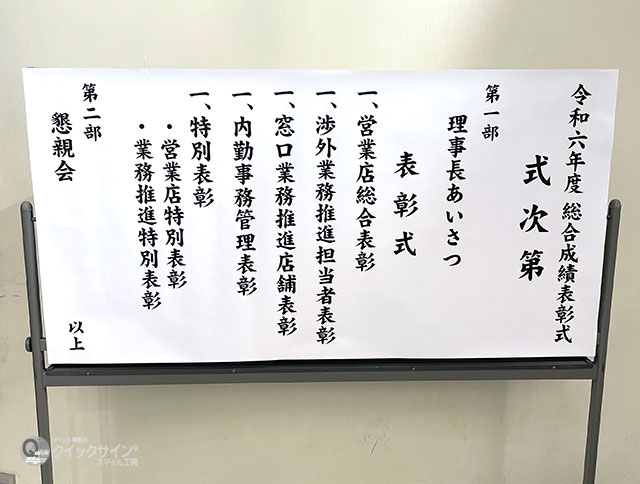 令和六年度 総合成績表彰式
式次第
第一部
理事長あいさつ
表彰式
一、営業店総合表彰
一、渉外業務推進担当者表彰
一、窓口業務推進店舗表彰
一、内勤事務管理表彰
一、特別表彰
・営業店特別表彰
・業務推進特別表彰
第二部
懇親会
以上
クイックサイン
スマイル工房